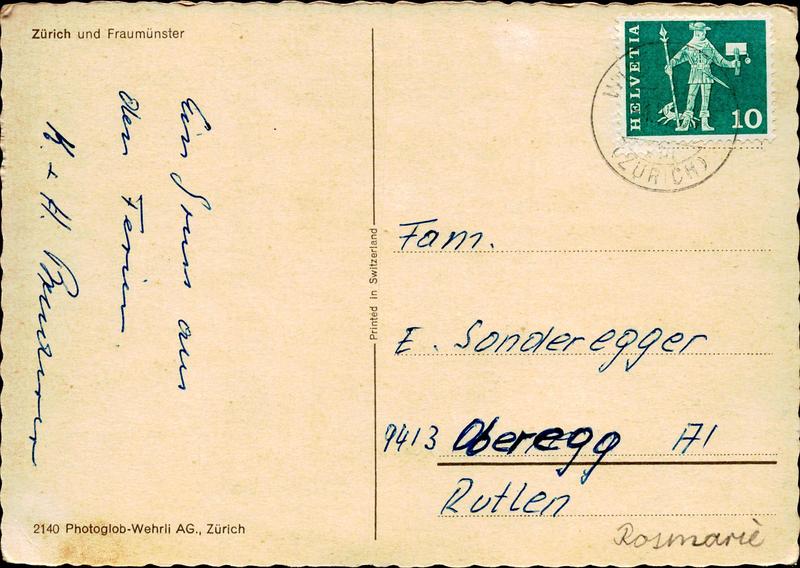 Zürich und Fraumünster
Ein Gruss aus
den Ferien
K. + H. Bruderer
2140 Photoglob-Wehrli AG., Zürich
Printed in Switzerland
HELVETIA
10
(ZÜRICH)
Fam.
E. Sonderegger
9413 Oberegg AI
Rutlen
Rosmarie